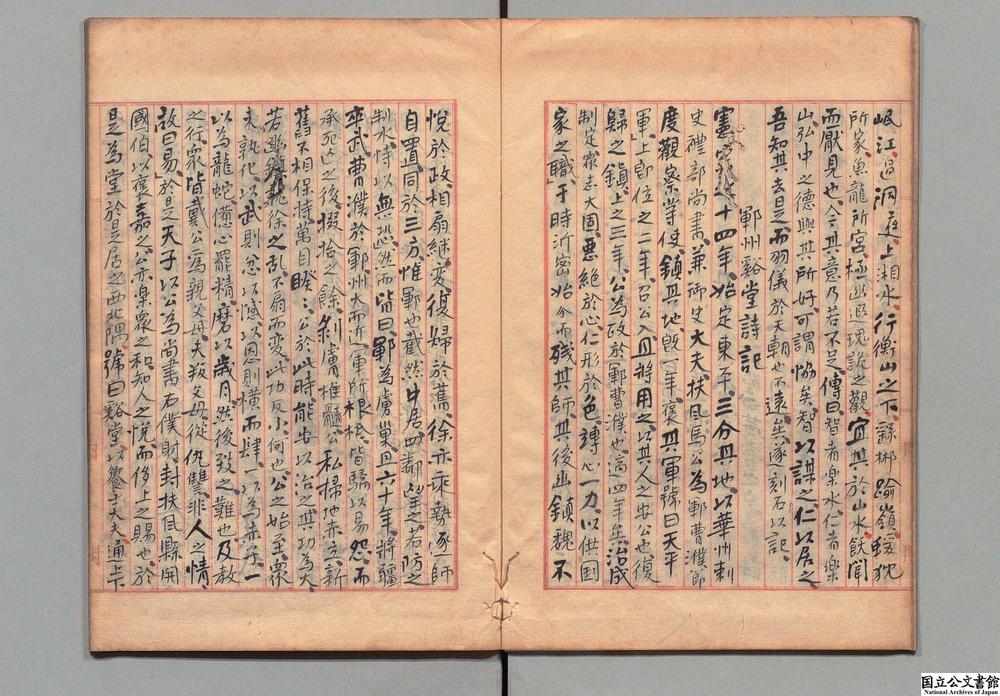 岷江過洞庭上湘水行衡山之下繇郴踰嶺蝯狖
所家魚龍所宮極幽遐瑰詭之觀宜其於山水飫聞
而厭見也今其意乃若不足傳曰智者楽水仁者楽
山弘中之德與其所好可謂恊矣智以謀之仁以居之
吾知其去是而羽儀於天朝也不遠矣遂刻石以記
鄆州谿堂詩記
憲宗之十四年始定東平三分其地以華州刺
史禮部尚書兼御史大夫扶风馬公為鄆曹濮節
度觀察等使鎮其地既一年褒其軍號曰天平
軍上即位之二年召公入且將用之以其人之安公也復
歸之鎮上之三年公為政於鄆曹濮也適四年矣治成
制定眾志大固惡絕於心仁形於色竱心一力以供国
家之職于時沂密始分而殘其師其後幽鎮魏不
悅於政相扇継変復歸於舊徐亦乘勢逐師
自置同於三方惟鄆也截然中居四鄰望之若防之
制水恃以無恐然而皆曰鄆為虜巢且六十年將疆
卒武曹濮於鄆州大而近軍所根柢皆驕以易怨而
承死亡之後掇拾之餘剝膚椎髓公私掃地赤立新
舊不相保持萬目睽睽公於此時能安以治之其功為大
若幽鎮魏徐之乱不扇而変此功反小何也公之始至眾
未孰化以武則忿以憾以恩則橫而肆一以為赤子一
以為龍蛇憊心罷精磨以歲月然後致之難也及教
之行眾皆戴公為親父母夫叛父母從仇讐非人之情
故曰易於是天子以公為尚書右僕射封扶风縣開
國伯以褒嘉之公亦楽眾之和知人之悅而侈上之賜也於
是為堂於是居之西北隅號曰谿堂以饗士大夫通上下
国立公文書館
National Archives of Japan